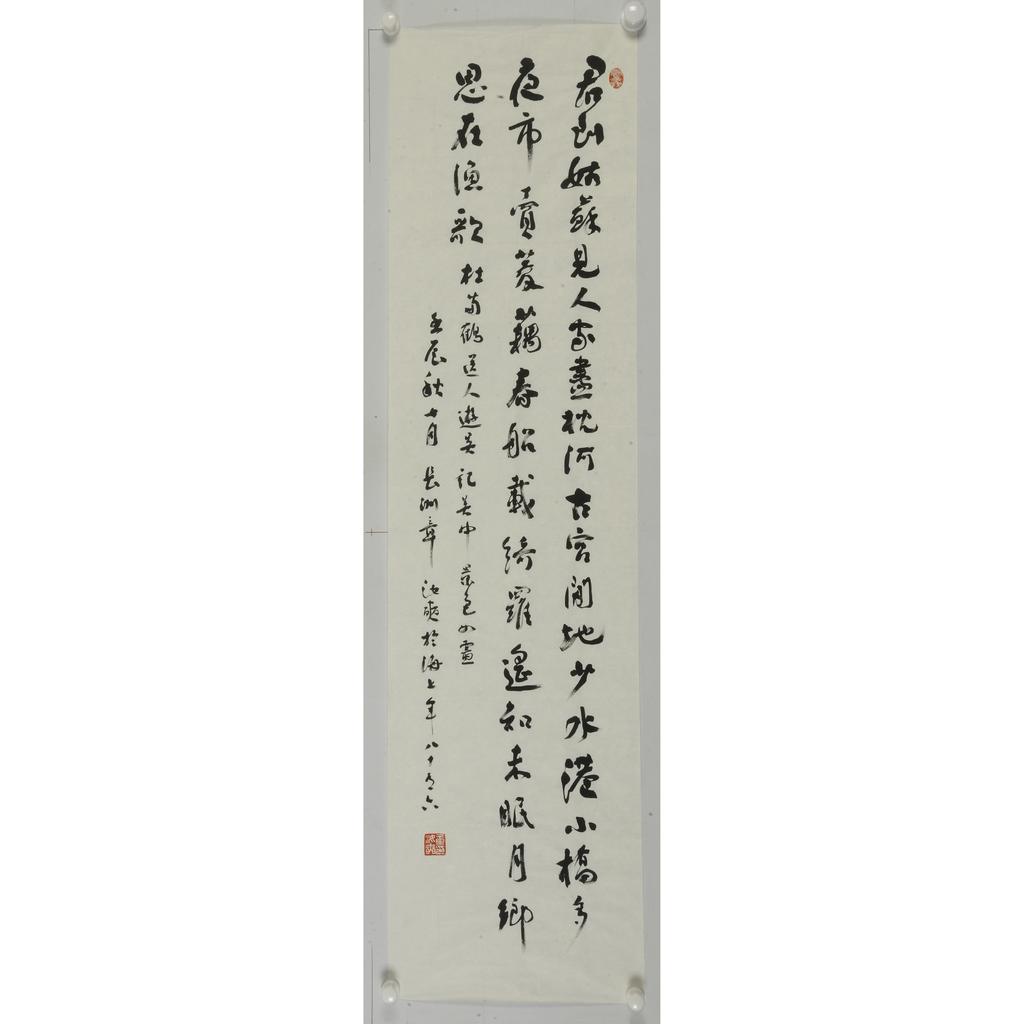 君到姑蘇見人家盡枕河古宮閒地少水港小橋多
夜市賣菱藕春船載綺羅遙知未眠月鄉
思在漁歌 杜荀鶴送人遊吳 記吳中景色如畫
壬辰秋七月長洲章汝奭於海上年八十有六